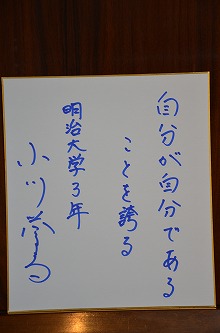 自分が自分である
ことを誇る
明治大学3年
小川